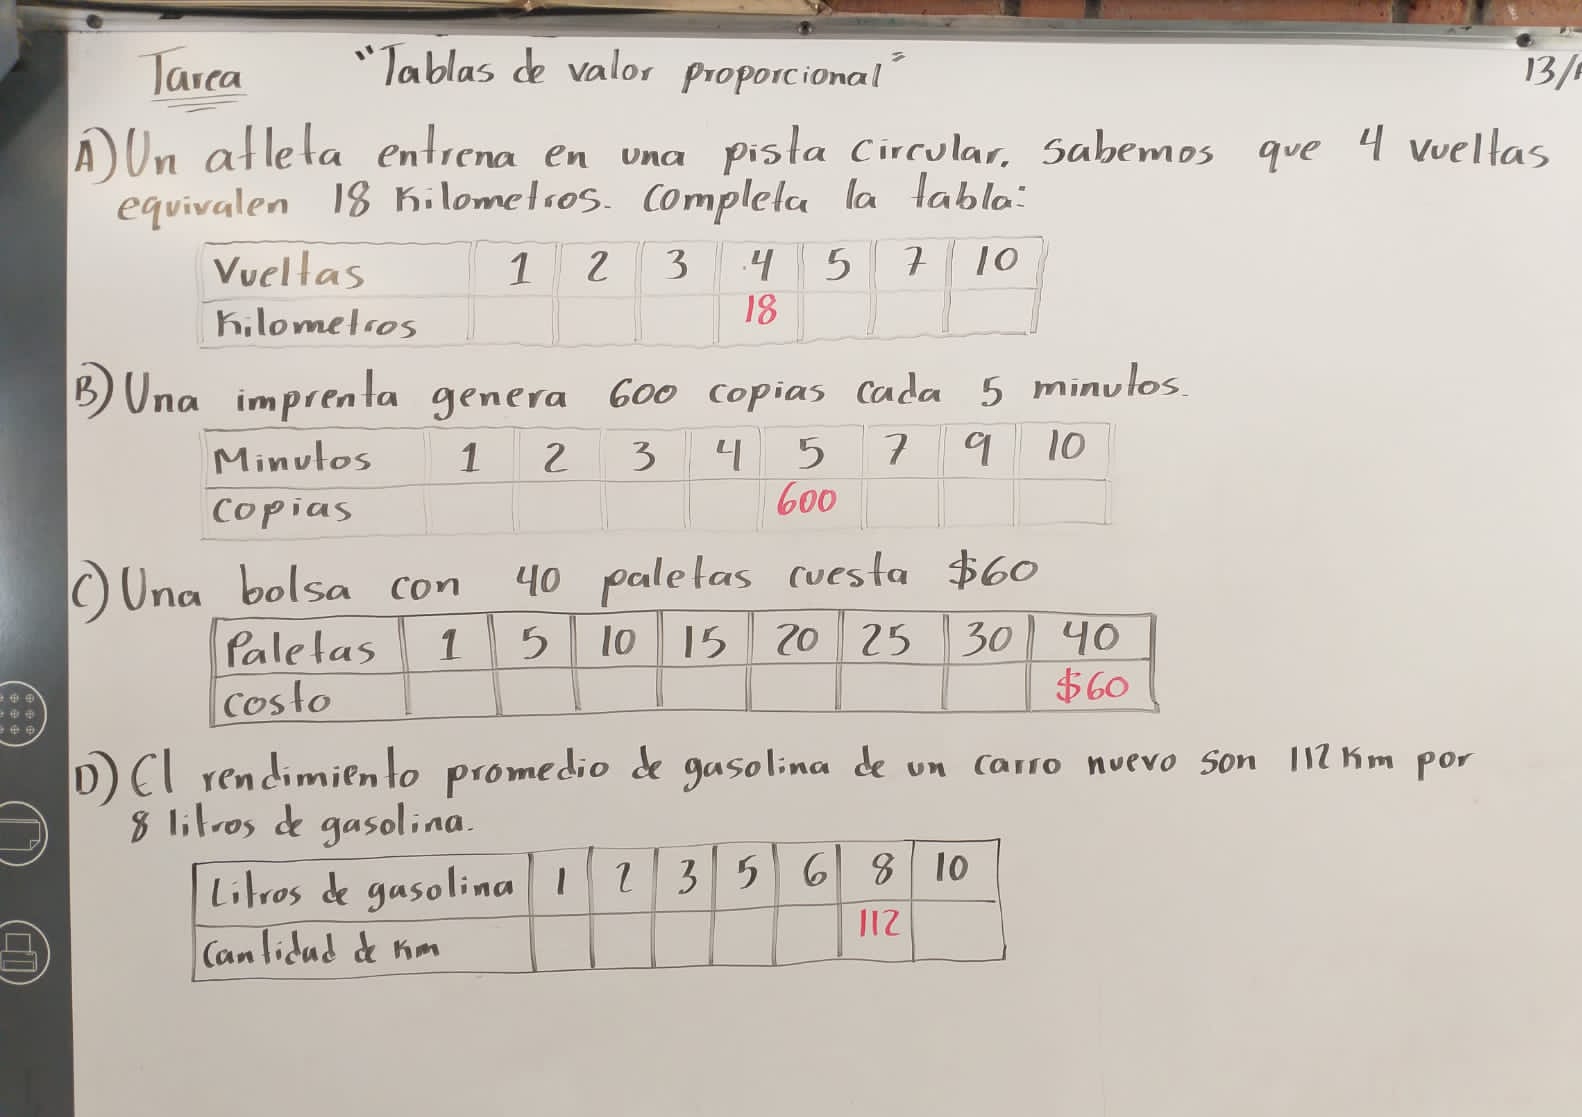 Tarea "Tablas de valor proporcional" 13/
A) Un atleta entrena en una pista circular. Sabemos que 4 vueltas
equivalen 18 Kilometros. Completa la tabla:
Vueltas 1 2 3 4 5 7 10
Kilometros 18
B) Una imprenta genera 600 copias cada 5 minutos.
Minutos 1 2 3 4 5 7 9 10
Copias 600
C) Una bolsa con 40 paletas cuesta $60
Paletas 1 5 10 15 20 25 30 40
Costo $60
D) El rendimiento promedio de gasolina de un carro nuevo son 112 Km por
8 litros de gasolina.
Litros de gasolina 1 2 3 5 6 8 10
Cantidad de Km 112